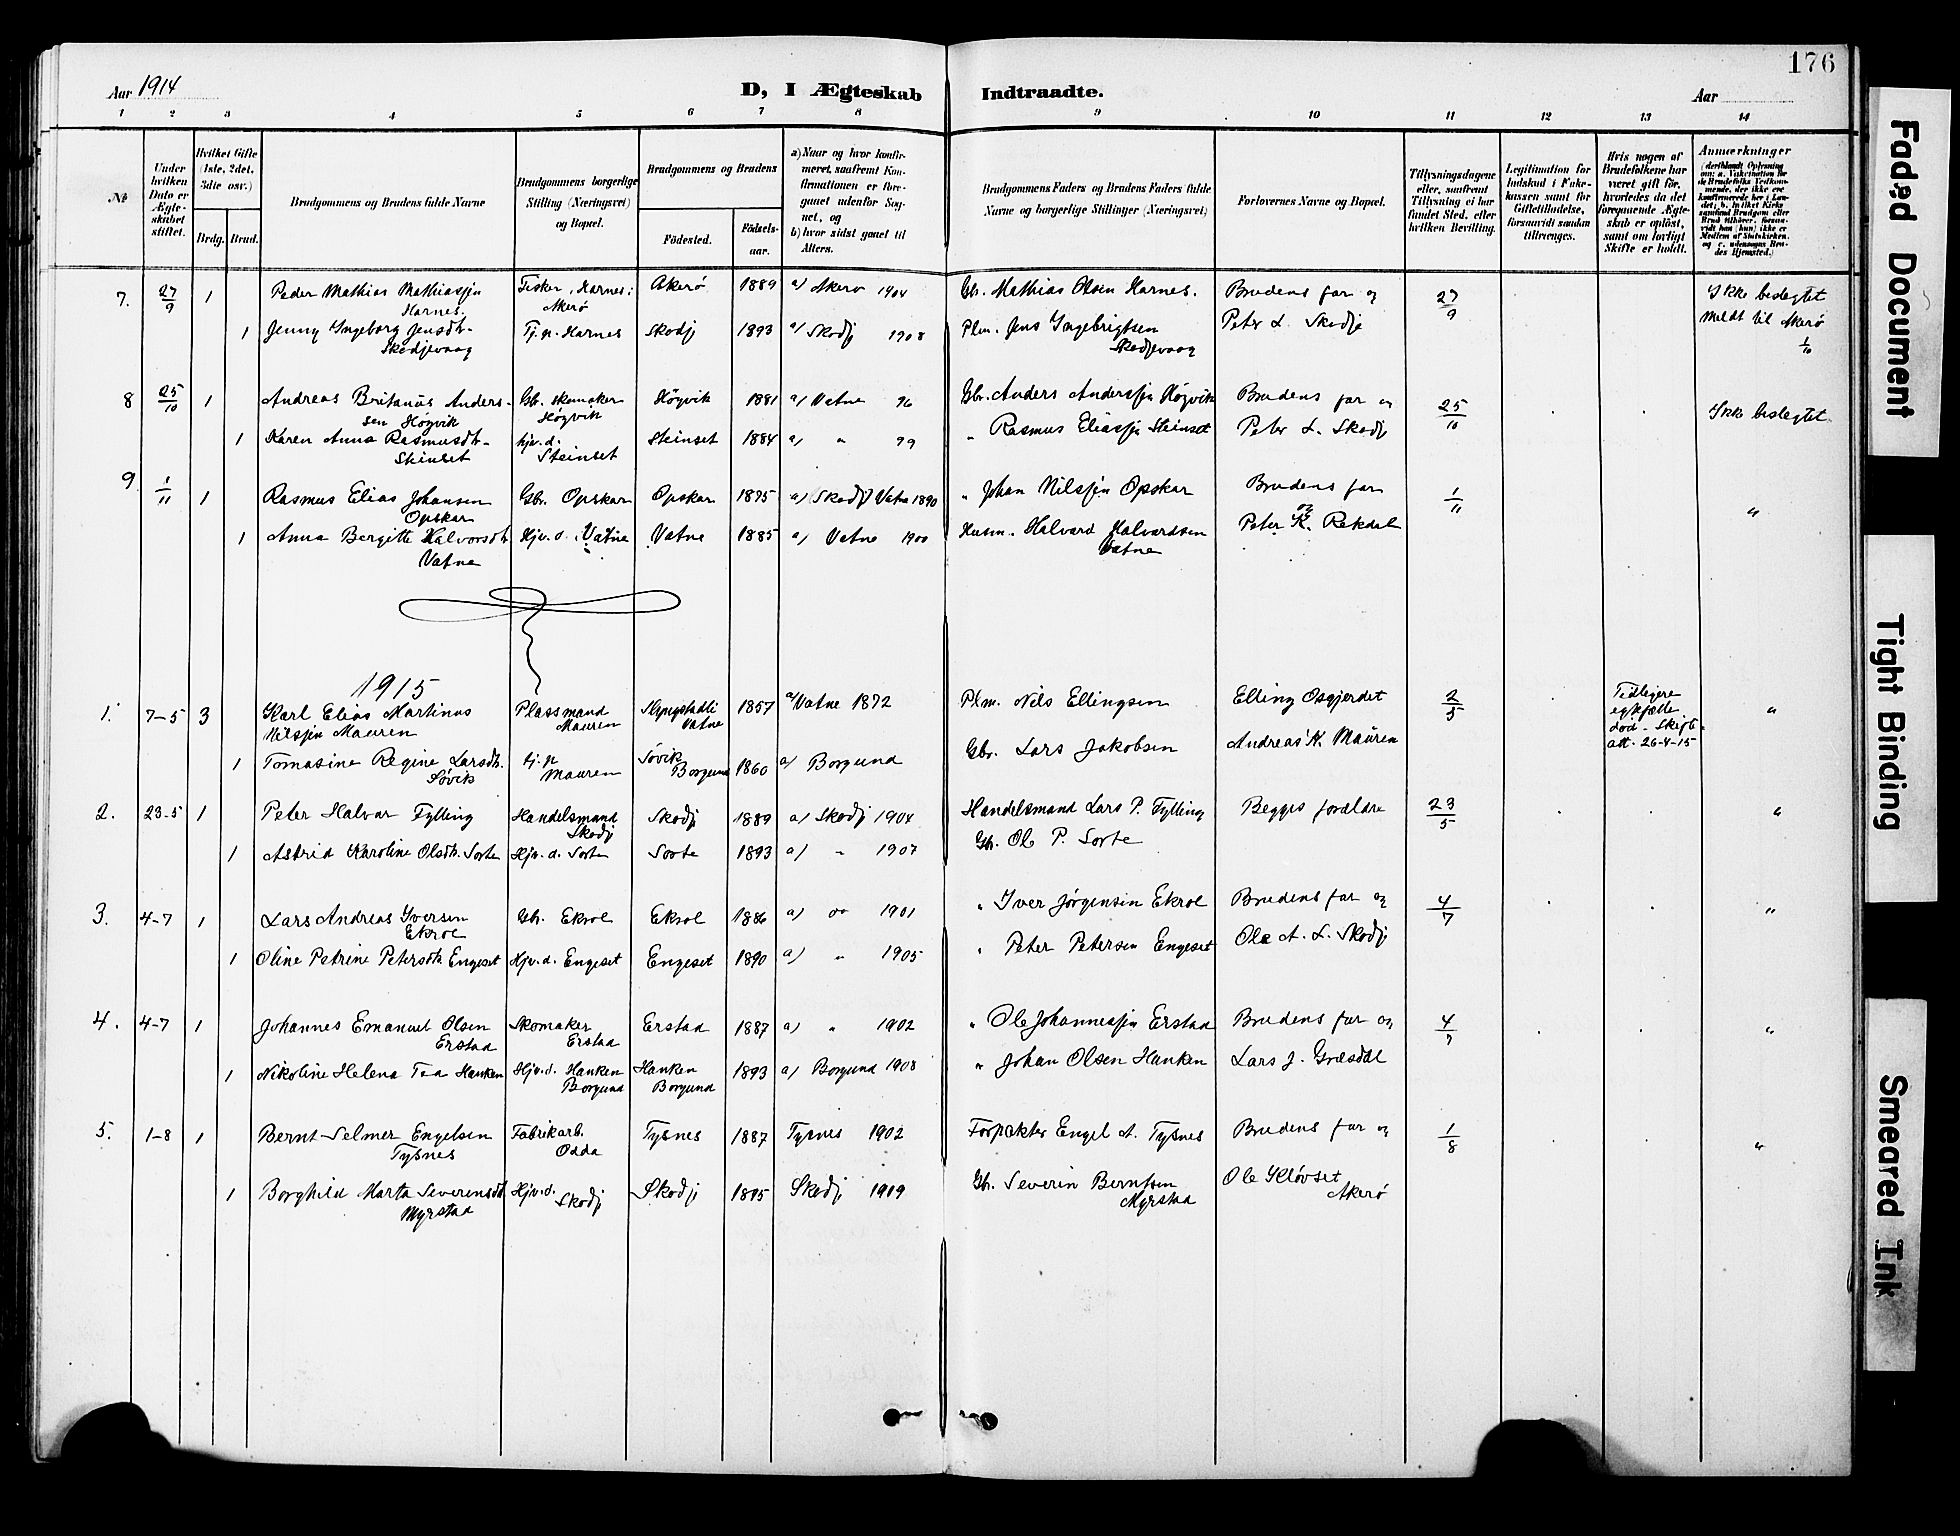 176
Aar 1914
D, I Ægteskab Indtraadte.
Aar
1 2 3 4 5 6 7 8 9 10 11 12 13 14
№
Under hvilken Dato er Ægteskabet stiftet.
Hvilket Gifte (1ste, 2det, 3die osv.)
Brdg. Brud.
Brudgommens og Brudens fulde Navne
Brudgommens borgerlige Stilling (Næringsvei) og Bopæl.
Brudgommens og Brudens
Födested.
Födselsaar.
a) Naar og hvor konfirmeret, saafremt Konfirmationen er foregaaet udenfor Sognet, og
b) hvor sidst gaaet til Alters.
Brudgommens Faders og Brudens Faders fulde Navne og borgerlige Stillinger (Næringsvei)
Forlovernes Navne og Bopæl.
Tillysningsdagene eller, saafremt Tillysning ei har fundet Sted, efter hvilken Bevilling.
Legitimation for Indskud i Enkekassen samt for Giftetilladelse, forsaavidt saadan tiltrænges.
Hvis nogen af Brudefolkene har været gift för, hvorledes da det foregaaende Ægteskab er oplöst, samt om lovligt Skifte er holdt.
Anmærkninger
(deriblandt Oplysning om: a. Vakcination for de Brudefolks Vedkommende, der ikke ere konfirmerede her i Landet; b. hvilket Kirkesamfund Brudgom eller Brud tilhörer, forsaavidt han (hun) ikke er Medlem af Statskirken, og c. udensogns Brudes Hjemsted.)
7. 27/9 1 Peder Mathias Mathiassen Harnes. Fisker, Harnes, Akerö Akerö 1889 a) Akerö 1904 Gbr. Mathias Olsen Harnes. Brudens far og 27/9 Ikke beslegtet
1 Jenny Ingeborg Jensdt. Skodjevaag Tj.p. Harnes Skodj 1893 a) Skodj 1908 Plm. Jens Ingebrigtsen Skodjevaag Peter L. Skodje Meldt til Akerö 1/10
8 25/10 1 Andreas Britanus Andersen Högvik Gbr. skomaker Högvik Högvik 1881 a) Vatne 96 Gbr. Anders Anderssen Högvik Brudens far og 25/10 Ikke beslegtet
1 Karen Anna Rasmusdt. Steinset hjv. d. Steinset Steinset 1884 a) " 99 " Rasmus Eliassen Steinset Peter L. Skodj
9 1/11 1 Rasmus Elias Johansen Opskar Gbr. Opskar Opskar 1875 a) Skodj Vatne 1890 " Johan Nilssen Opskar Brudens far og 1/11 "
1 Anna Bergitte Halvorsdt. Vatne Hjv. d. Vatne Vatne 1885 a) Vatne 1900 Husm. Halvard Halvardsen Vatne Peter K. Rekdal
1915
1. 7-5 3 Karl Elias Martinus Nilssen Mauren Plassmand Mauren Vatne 1857 a) Vatne 1872 Plm. Nils Ellingsen Elling Osgjerdet 2/5 Tidligere egtefelle död - Skifteatt. 26-4-15 "
1 Tomasine Regine Larsdt. Sövik tj. p. Mauren Sövik Borgund 1860 a) Borgund Gbr. Lars Jakobsen Andreas K. Mauren
2. 23-5 1 Peter Halvar Fylling Handelsmand Skodj Skodj 1889 a) Skodj 1904 Handelsmand Lars P. Fylling Begges foreldre 23/5 "
1 Astrid Karoline Olsdt. Sorte Hjv. d. Sorte Sorte 1893 a) " 1907 Gbr. Ole P. Sorte
3. 4-7 1 Lars Andreas Iversen Ekrol Gbr. Ekrol Ekrol 1886 a) " 1901 " Iver Jörgensen Ekrol Brudens far og 4/7 "
1 Oline Petrine Petersdt. Engeset Hjv. d. Engeset Engeset 1890 a) " 1905 " Peter Petersen Engeset Ole A. L. Skodj
4. 4-7 1 Johannes Emanuel Olsen Erstad Skomaker Erstad Erstad 1887 a) " 1902 " Ole Johannessen Erstad Brudens far og 4/7 "
1 Nikoline Helena Tea Hanken Hjv. d. Hanken Borgund Hanken Borgund 1893 a) Borgund 1908 " Johan Olsen Hanken Lars J. Græsdal
5. 1-8 1 Bernt Selmer Engelsen Tysnes Fabrikarb. Odda Tysnes 1887 Tysnes 1902 Forpakter Engel A. Tysnes Brudens far og 1/8 "
1 Borghild Marta Severensdt. Myrstad Hjv. d. Skodj Skodj 1895 Skodj 1909 Gbr. Severin Berntsen Myrstad Ole Klövset Akerö
Faded Document
Tight Binding
Smeared Ink